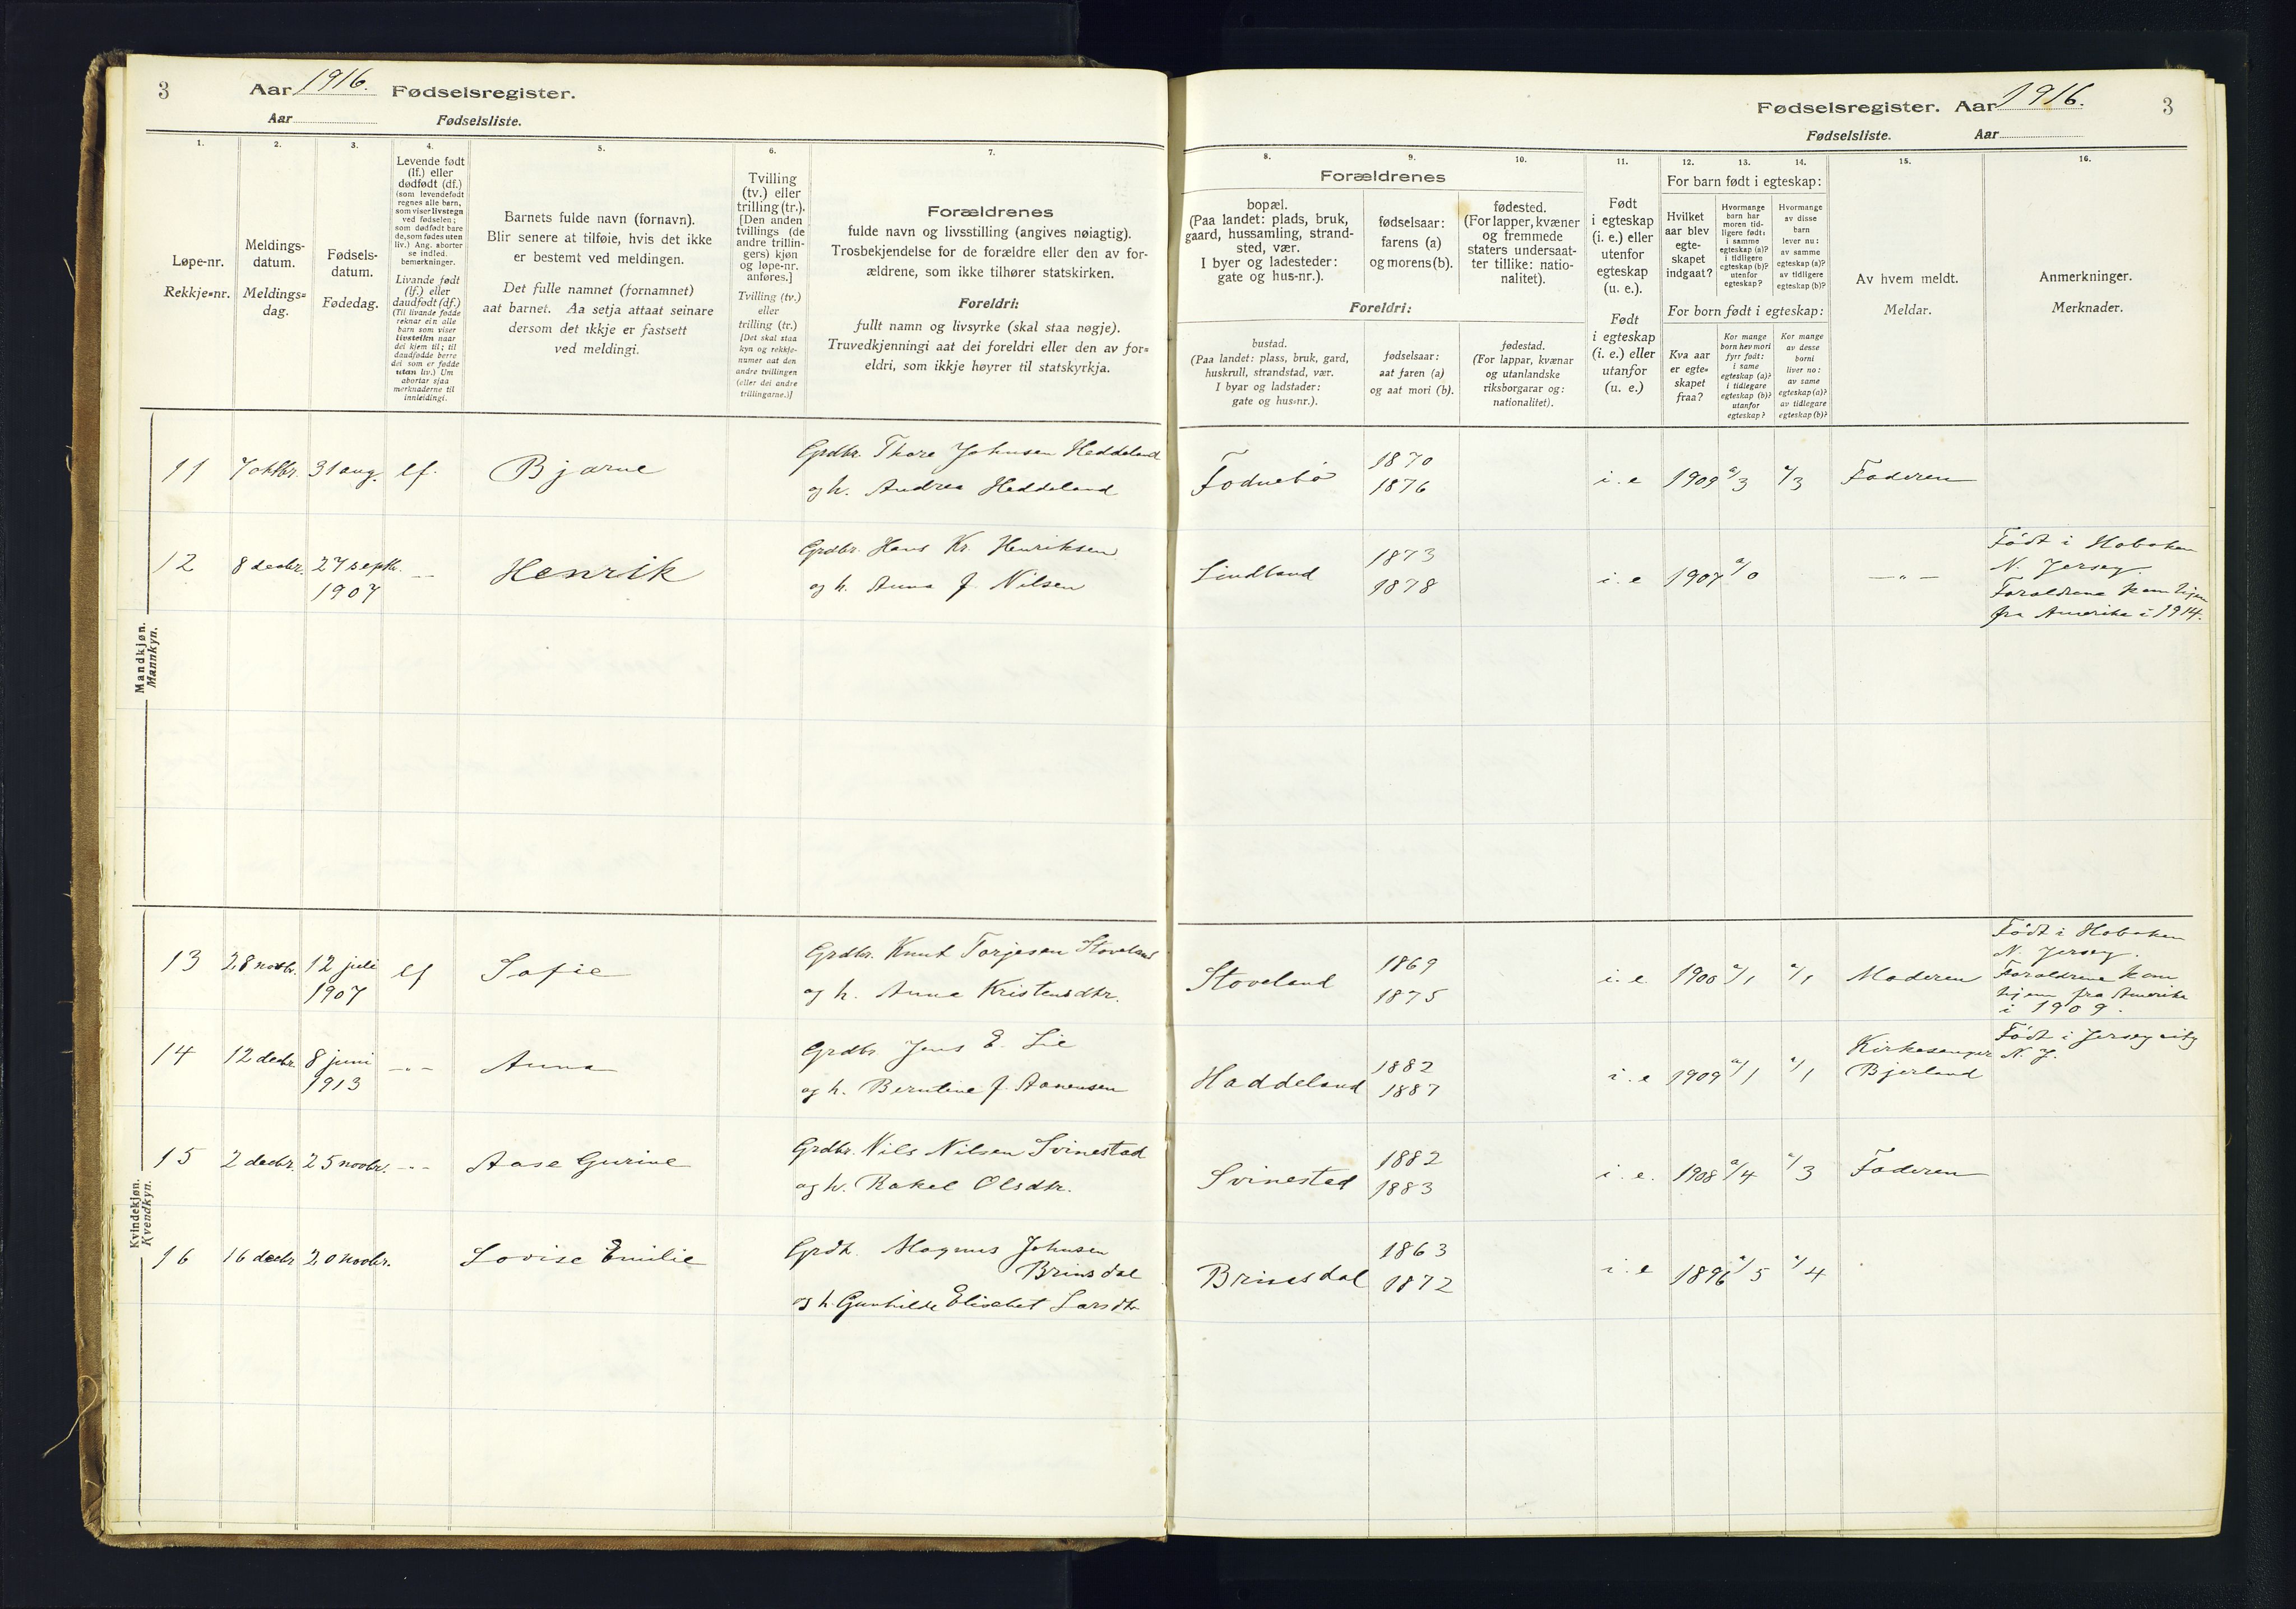 3
Aar 1916. Fødselsregister.
Aar Fødselsliste.
1.
2.
3.
4.
5.
6.
7.
Løpe-nr.
Rekkje=nr.
Meldings-
datum.
Meldings=
dag.
Fødsels-
datum.
Fødedag.
Levende født
(lf.) eller
dødfødt (df.)
(som levendefødt
regnes alle barn,
som viser livstegn
ved fødselen;
som dødfødt bare
de, som fødes uten
liv.) Ang. aborter
se indled.
bemerkninger.
Livande født
(lf.) eller
daudfødt (df.)
(Til livande fødde
reknar ein alle
barn som viser
livsteikn naar
dei kjem til; til
daudfødde berre
dei som er fødde
utan liv.) Um
abortar sjaa
merknaderne til
innleidingi.
Barnets fulde navn (fornavn).
Blir senere at tilføie, hvis det ikke
er bestemt ved meldingen.
Det fulle namnet (fornamnet)
aat barnet. Aa setja attaat seinare
dersom det ikkje er fastsett
ved meldingi.
Tvilling
(tv.) eller
trilling (tr.).
[Den anden
tvillings (de
andre trillin-
gers) kjøn
og løpe-nr.
anføres.]
Tvilling (tv.)
eller
trilling (tr.)
[Det skal staa
kyn og rekkje-
numer aat den
andre tvillingen
(eller dei andre
trillingarne.)]
Forældrenes
fulde navn og livsstilling (angives nøiagtig).
Trosbekjendelse for de forældre eller den av for-
ældrene, som ikke tilhører statskirken.
Foreldri:
fullt namn og livsyrke (skal staa nøgje).
Truvedkjenningi aat dei foreldri eller den av for=
eldri, som ikkje høyrer til statskyrkja.
Mandkjøn.
Mannkyn.
11 7 oktbr. 31 aug. lf. Bjarne Grdbr. Thore Johnsen Heddeland
og h. Andrea Heddeland
12 8 decbr. 27 septb. 1907 -"- Henrik Grdbr. Hans Kr. Henriksen
og h. Anna J. Nilsen
Kvindekjøn.
Kvendkyn.
13 28 novbr. 12 juli 1907 lf Sofie Grdbr. Knut Torjesen Stoveland
og h. Anna Kristensdtr.
14 12 decbr. 8 juni 1913 -"- Anna Grdbr Jens E. Lie
og h. Berntine J. Aanensen
15 2 decbr. 25 novbr. -"- Aase Gurine Grdbr. Nils Nilsen Svinestad
og h. Rakel Olsdtr.
16 16 decbr 20 novbr. Lovise Emilie Grdbr. Magnus Johnsen
Brinsdal
og h. Gunhilde Elisabet Larsdtr
Fødselsregister. Aar 1916.
3
Fødselsliste. Aar
8.
9.
10.
11.
12.
13.
14.
15.
16.
Forældrenes
bopæl.
(Paa landet: plads, bruk,
gaard, hussamling, strand-
sted, vær.
I byer og ladesteder:
gate og hus-nr.).
fødselsaar:
farens (a)
og morens (b).
fødested.
(For lapper, kvæner
og fremmede
staters undersaat-
ter tillike: natio-
nalitet).
Foreldri:
bustad.
(Paa landet: plass, bruk, gard,
huskrull, strandstad, vær.
I byar og ladstader:
gate og hus=nr.).
fødselsaar:
aat faren (a)
og aat mori (b).
fødestad.
(For lappar, kvænar
og utanlandske
riksborgarar og:
nationalitet).
Født
i egteskap
(i. e.) eller
utenfor
egteskap
(u. e.).
Født
i egteskap
(i. e.) eller
utanfor
(u. e.)
For barn født i egteskap:
Hvilket
aar blev
egte-
skapet
indgaat?
Hvormange
barn har
moren tid-
ligere født:
i samme
egteskap (a)?
i tidligere
egteskap (b)?
utenfor
egteskap?
Hvormange
av disse
barn
lever nu:
av samme
egteskap (a)?
av tidligere
egteskap (b)?
For born født i egteskap:
Kva aar
er egte=
skapet
fraa?
Kor mange
born hev mori
fyrr født:
i same
egteskap (a)?
i tidlegare
egteskap (b)?
utanfor
egteskap?
Kor mange
av desse
borni
liver no:
av same
egteskap (a)?
av tidlegare
egteskap (b)?
Av hvem meldt.
Meldar.
Anmerkninger.
Merknader.
Fodnebö 1870 1876 i. e 1909 a/3 a/3 Faderen
Lindland 1873 1878 i. e 1907 a/0 -"-
Födt i Hoboken
N. Jersey
Foraldrene kom hjem
fra Amerika i 1914.
Stoveland 1869 1875 i. e. 1900 a/1 a/1 Moderen
Födt i Hoboken
N. Jersey.
Foraldrene kom
hjem fra Amerika
i 1909.
Haddeland 1882 1887 i. e 1909 a/1 a/1 Kirkesanger
Bjerland
Födt i Jersey city
N. J.
Svinestad 1882 1883 i. e. 1908 a/4 a/3 Faderen
Brinsdal 1863 1872 i. e 1896 a/5 a/4